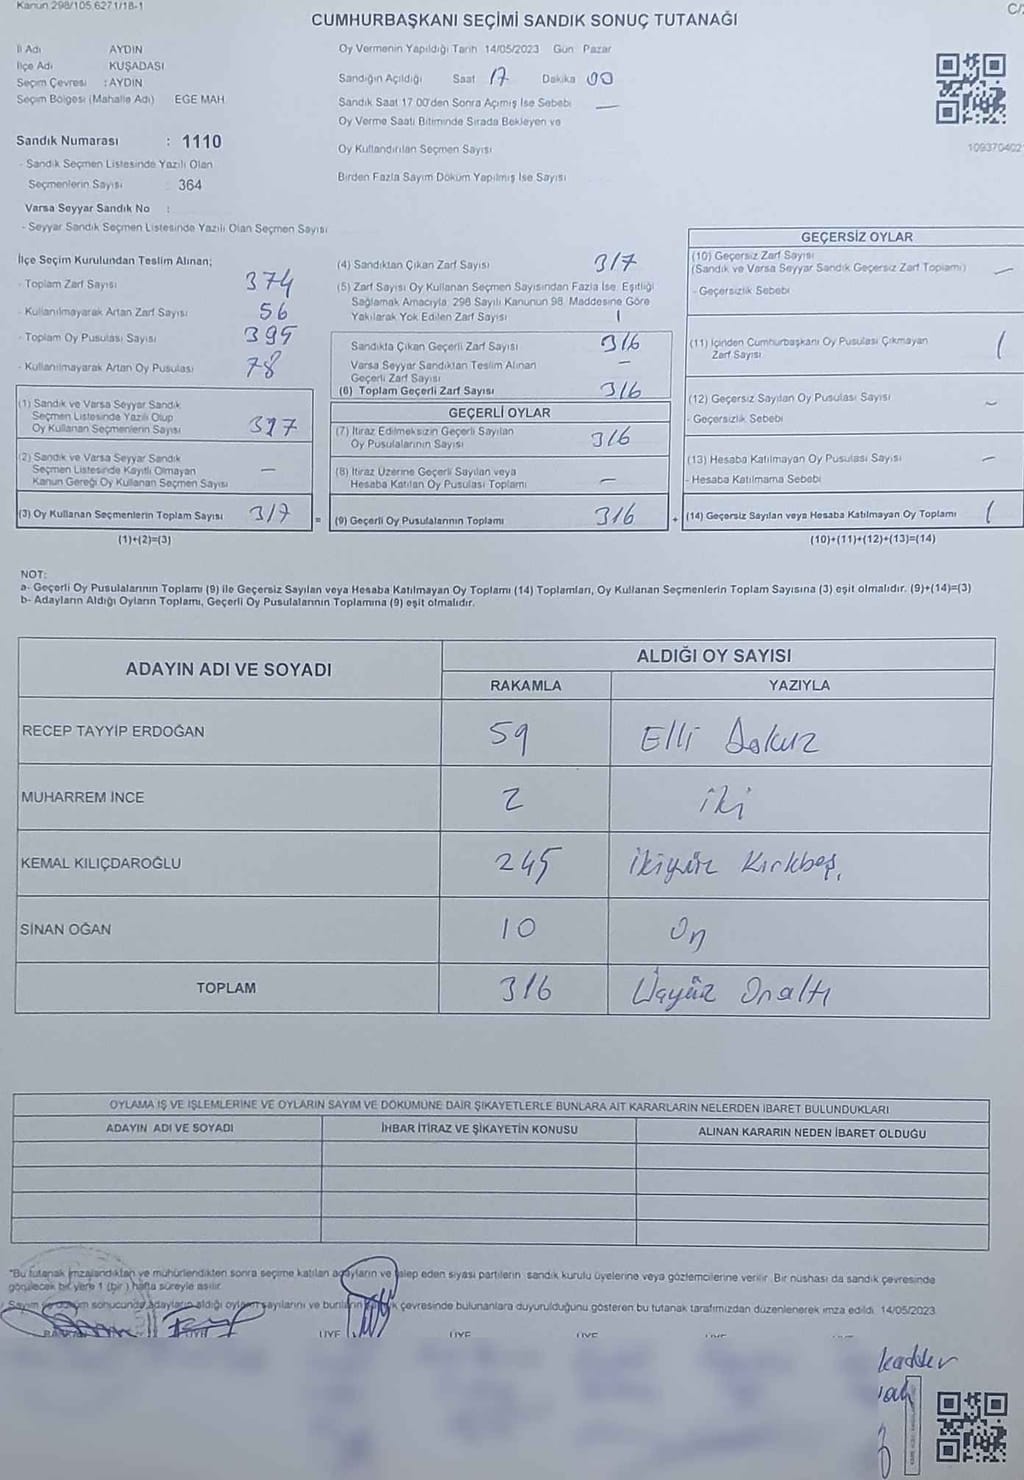 Kanun 298/105,627.1/18-1
C/2
CUMHURBAŞKANI SEÇİMİ SANDIK SONUÇ TUTANAĞI
İl Adı AYDIN
İlçe Adı KUŞADASI
Seçim Çevresi : AYDIN
Seçim Bölgesi (Mahalle Adı) EGE MAH.
Sandık Numarası : 1110
- Sandık Seçmen Listesinde Yazılı Olan
Seçmenlerin Sayısı 364
Varsa Seyyar Sandık No :
- Seyyar Sandık Seçmen Listesinde Yazılı Olan Seçmen Sayısı
Oy Vermenin Yapıldığı Tarih 14/05/2023 Gün Pazar
Sandığın Açıldığı Saat 17 Dakika 00
Sandık Saat 17.00'den Sonra Açımış İse Sebebi —
Oy Verme Saati Bitiminde Sırada Bekleyen ve
Oy Kullandırılan Seçmen Sayısı
Birden Fazla Sayım Döküm Yapılmış İse Sayısı
109370402
İlçe Seçim Kurulundan Teslim Alınan;
- Toplam Zarf Sayısı 374
- Kullanılmayarak Artan Zarf Sayısı 56
- Toplam Oy Pusulası Sayısı 395
- Kullanılmayarak Artan Oy Pusulası 78
(1) Sandık ve Varsa Seyyar Sandık
Seçmen Listesinde Yazılı Olup
Oy Kullanan Seçmenlerin Sayısı 317
(2) Sandık ve Varsa Seyyar Sandık
Seçmen Listesinde Kayıtlı Olmayan
Kanun Gereği Oy Kullanan Seçmen Sayısı —
(3) Oy Kullanan Seçmenlerin Toplam Sayısı 317
(1)+(2)=(3)
=
(4) Sandıktan Çıkan Zarf Sayısı 317
(5) Zarf Sayısı Oy Kullanan Seçmen Sayısından Fazla İse, Eşitliği
Sağlamak Amacıyla, 298 Sayılı Kanunun 98. Maddesine Göre
Yakılarak Yok Edilen Zarf Sayısı 1
Sandıkta Çıkan Geçerli Zarf Sayısı 316
Varsa Seyyar Sandıktan Teslim Alınan
Geçerli Zarf Sayısı —
(6) Toplam Geçerli Zarf Sayısı 316
GEÇERLİ OYLAR
(7) İtiraz Edilmeksizin Geçerli Sayılan
Oy Pusulalarının Sayısı 316
(8) İtiraz Üzerine Geçerli Sayılan veya
Hesaba Katılan Oy Pusulası Toplamı —
(9) Geçerli Oy Pusulalarının Toplamı 316
+
GEÇERSİZ OYLAR
(10) Geçersiz Zarf Sayısı
(Sandık ve Varsa Seyyar Sandık Geçersiz Zarf Toplamı) —
- Geçersizlik Sebebi
(11) İçinden Cumhurbaşkanı Oy Pusulası Çıkmayan
Zarf Sayısı 1
(12) Geçersiz Sayılan Oy Pusulası Sayısı —
- Geçersizlik Sebebi
(13) Hesaba Katılmayan Oy Pusulası Sayısı —
- Hesaba Katılmama Sebebi
(14) Geçersiz Sayılan veya Hesaba Katılmayan Oy Toplamı 1
(10)+(11)+(12)+(13)=(14)
NOT:
a- Geçerli Oy Pusulalarının Toplamı (9) ile Geçersiz Sayılan veya Hesaba Katılmayan Oy Toplamı (14) Toplamları, Oy Kullanan Seçmenlerin Toplam Sayısına (3) eşit olmalıdır. (9)+(14)=(3)
b- Adayların Aldığı Oyların Toplamı, Geçerli Oy Pusulalarının Toplamına (9) eşit olmalıdır.
ADAYIN ADI VE SOYADI ALDIĞI OY SAYISI
RAKAMLA YAZIYLA
RECEP TAYYİP ERDOĞAN 59 Elli Dokuz
MUHARREM İNCE 2 iki
KEMAL KILIÇDAROĞLU 245 ikiyüz Kırkbeş,
SİNAN OĞAN 10 On
TOPLAM 316 Üçyüz Onaltı
OYLAMA İŞ VE İŞLEMLERİNE VE OYLARIN SAYIM VE DÖKÜMÜNE DAİR ŞİKAYETLERLE BUNLARA AİT KARARLARIN NELERDEN İBARET BULUNDUKLARI
ADAYIN ADI VE SOYADI İHBAR İTİRAZ VE ŞİKAYETİN KONUSU ALINAN KARARIN NEDEN İBARET OLDUĞU
"Bu tutanak imzalandıktan ve mühürlendikten sonra seçime katılan adayların ve talep eden siyasi partilerin sandık kurulu üyelerine veya gözlemcilerine verilir. Bir nüshası da sandık çevresinde
görülecek bir yere 1 (bir) hafta süreyle asılır.
Sayım ve döküm sonucunda adayların aldığı oyların sayılarını ve bunların sandık çevresinde bulunanlara duyurulduğunu gösteren bu tutanak tarafımızdan düzenlenerek imza edildi. 14/05/2023
ÜYE ÜYE ÜYE ÜYE